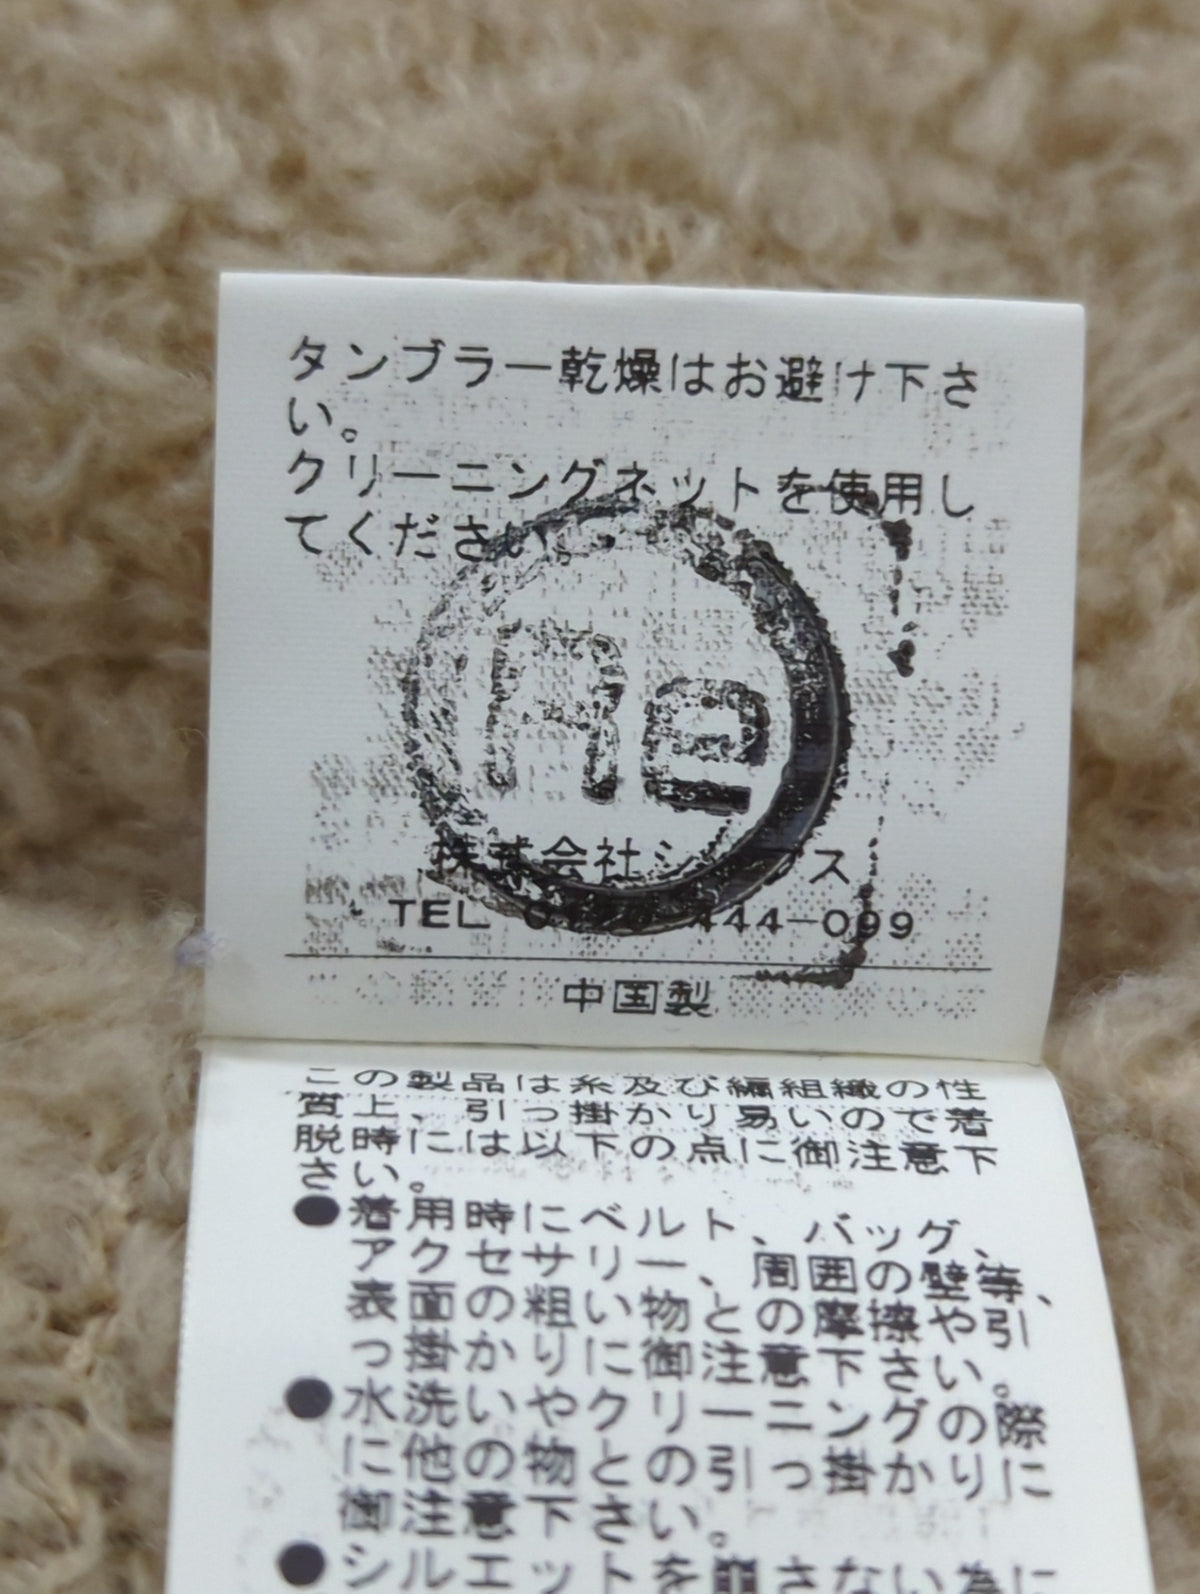 タンブラー乾燥はお避け下さ
い。
クリーニングネットを使用し
てください。
Re
株式会社シップス
TEL 0120-444-099
中国製
この製品は糸及び編組織の性
質上、引っ掛かり易いので着
脱時には以下の点に御注意下
さい。
●着用時にベルト、バッグ、
アクセサリー、周囲の壁等、
表面の粗い物との摩擦や引
っ掛かりに御注意下さい。
●水洗いやクリーニングの際
に他の物との引っ掛かりに
御注意下さい。
●シルエットを崩さない為に